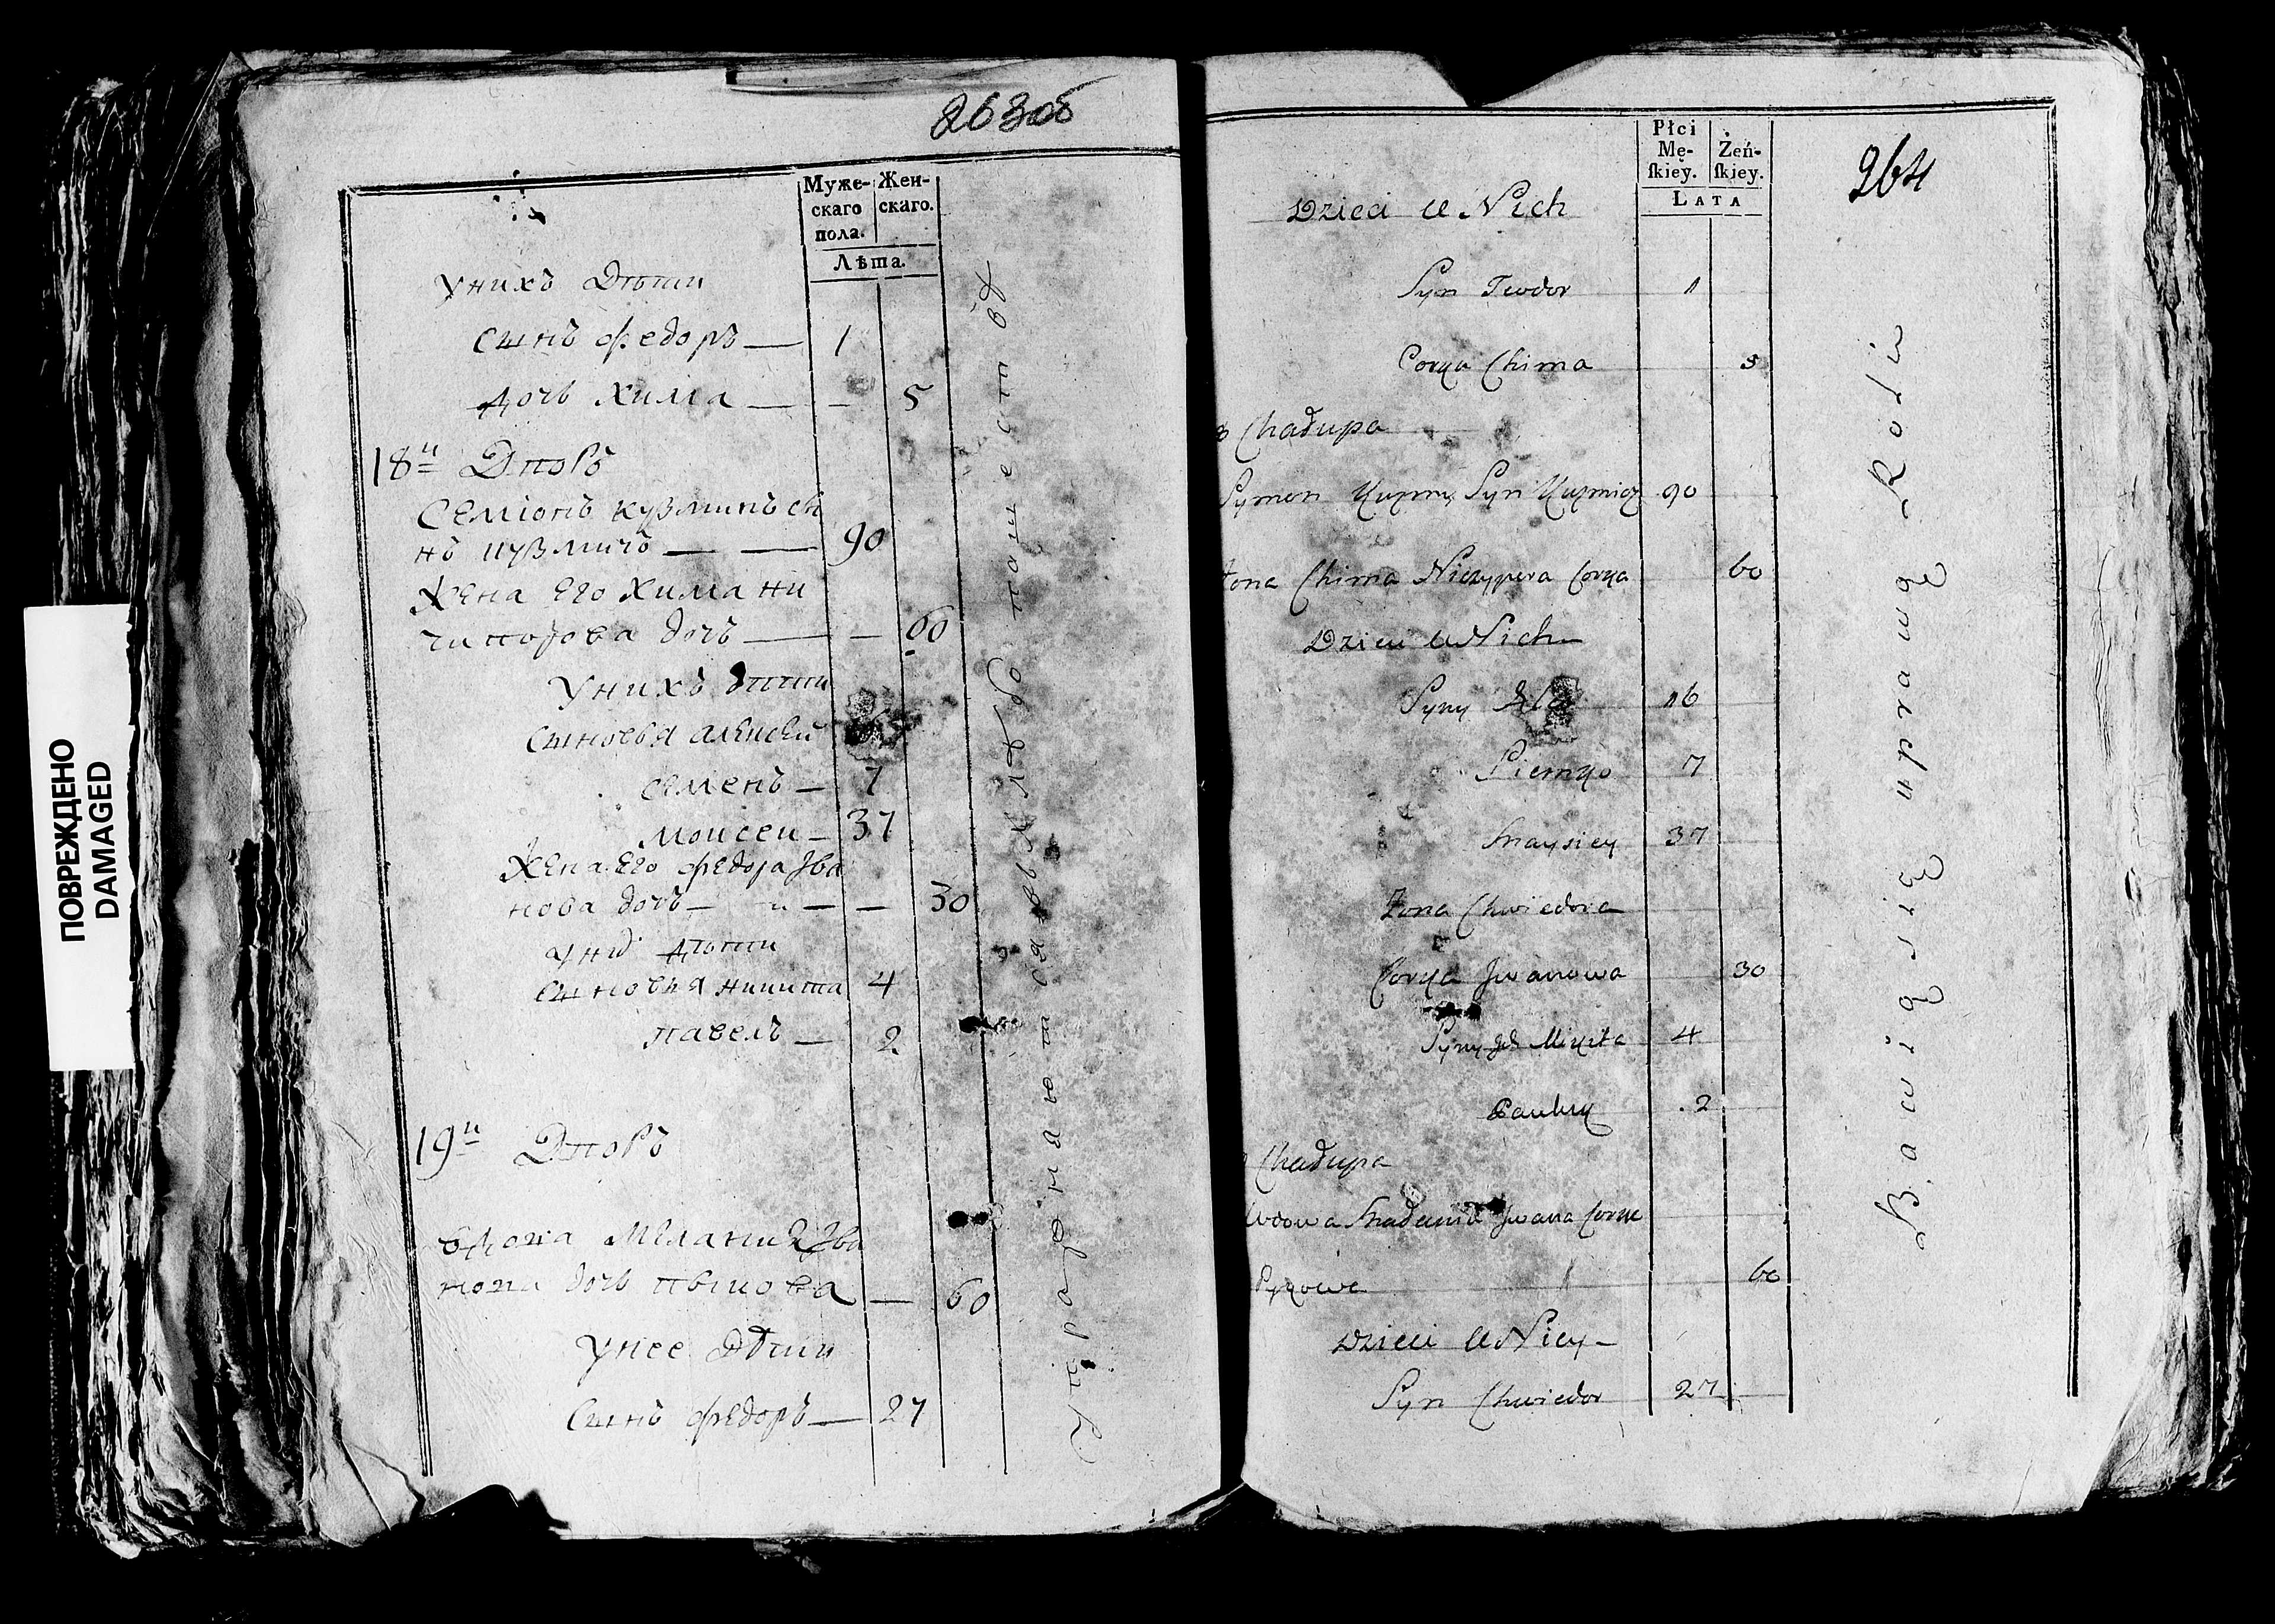 ПОВРЕЖДЕНО
DAMAGED
263об
Муже-
скаго
пола.
Жен-
скаго.
Лѣта.
Унихъ Дѣти
Сынъ Федоръ — 1
Дочь Хима — — 5
18й Дворъ
Семионъ Кузминъ сы
нъ Кузмичъ — — 90
Жена Его Хима Ни
чипорова дочь — — 60
Унихъ дѣти
Сыновья Алексей
Семенъ — 7
Моисеи — 37
Жена Его Федора Ива
нова дочь — — — 30
Дѣти
Сыновья Никита 4
Павелъ — 2
19й Дворъ
Вдова Мелания Ива
нова дочь — 60
Унее Дѣти
Сынъ Федоръ — 27
264
Płci
Mę-
ſkiey.
Żeń-
ſkiey.
LATA
Dzieci U Nich
Syn Teodor 1
Corka Chima 5
Chałupa
Symon Kuzmy Syn Kuzmicz 90
Żona Chima Niczypora Corka 60
Dzieci U Nich
Syny 16
Siemko 7
Maysiey 37
Żona Chwiedora
Corka Jwanowa 30
Syny Ich Mikita 4
Pauluk 2
Chałupa
Wdowa Małania Jwana Corka
Pykowa 60
Dzieci U Niey
Syn Chwiedor 27
Bawią się uprawą Roli